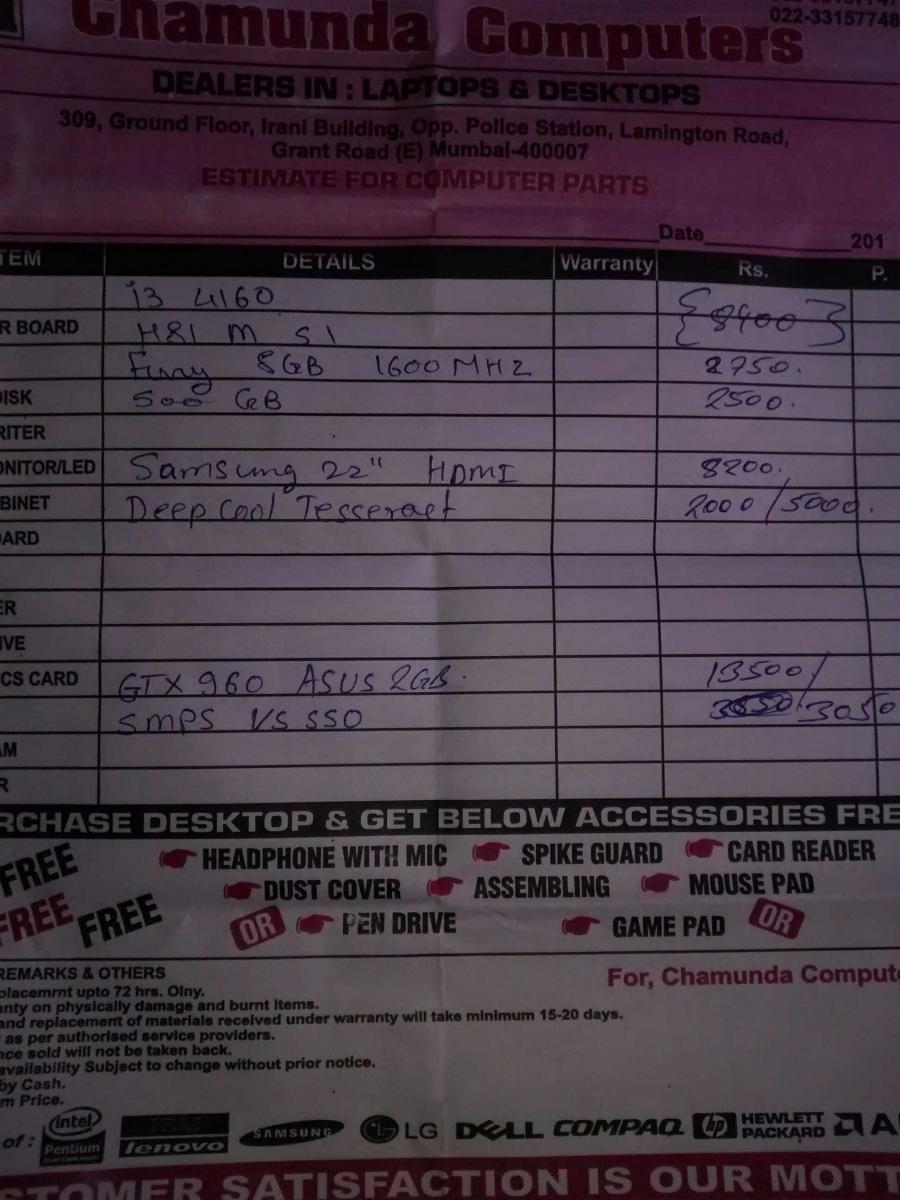 022-33157748
Chamunda Computers
DEALERS IN : LAPTOPS & DESKTOPS
309, Ground Floor, Irani Building, Opp. Police Station, Lamington Road,
Grant Road (E) Mumbai-400007
ESTIMATE FOR COMPUTER PARTS
Date 201
TEM DETAILS Warranty Rs. P.
i3 4160
R BOARD H81 M S1 8400
Fury 8GB 1600 MHZ 2750.
DISK 500 GB 2500.
RITER
ONITOR/LED Samsung 22" HDMI 8200.
BINET Deep Cool Tesseract 2000/5000.
ARD
ER
IVE
CS CARD GTX 960 ASUS 2GB. 13500/
SMPS VS 550 3050
AM
R
RCHASE DESKTOP & GET BELOW ACCESSORIES FRE
FREE HEADPHONE WITH MIC SPIKE GUARD CARD READER
FREE FREE DUST COVER ASSEMBLING MOUSE PAD
OR PEN DRIVE GAME PAD OR
REMARKS & OTHERS
For, Chamunda Compute
placemrnt upto 72 hrs. Olny.
anty on physically damage and burnt items.
and replacement of materials received under warranty will take minimum 15-20 days.
as per authorised service providers.
nce sold will not be taken back.
availability Subject to change without prior notice.
by Cash.
m Price.
of : intel Pentium IBM lenovo SAMSUNG LG DELL COMPAQ hp HEWLETT PACKARD A
STOMER SATISFACTION IS OUR MOTT